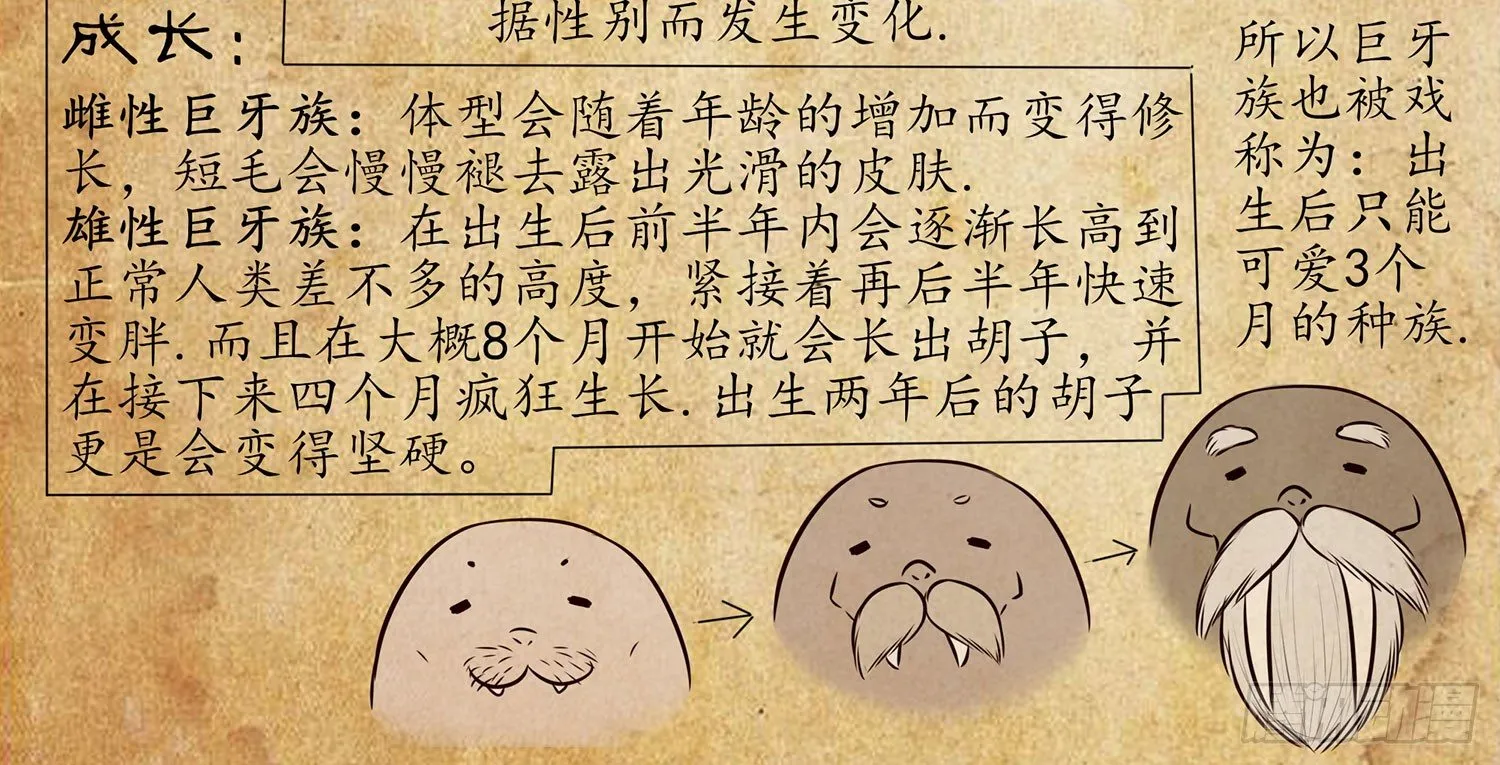 据性别而发生变化.
成长:
雌性巨牙族：体型会随着年龄的增加而变得修
长，短毛会慢慢褪去露出光滑的皮肤.
雄性巨牙族：在出生后前半年内会逐渐长高到
正常人类差不多的高度，紧接着再后半年快速
变胖.而且在大概8个月开始就会长出胡子，并
在接下来四个月疯狂生长.出生两年后的胡子
更是会变得坚硬。
所以巨牙
族也被戏
称为：出
生后只能
可爱3个
月的种族.
腾讯动漫